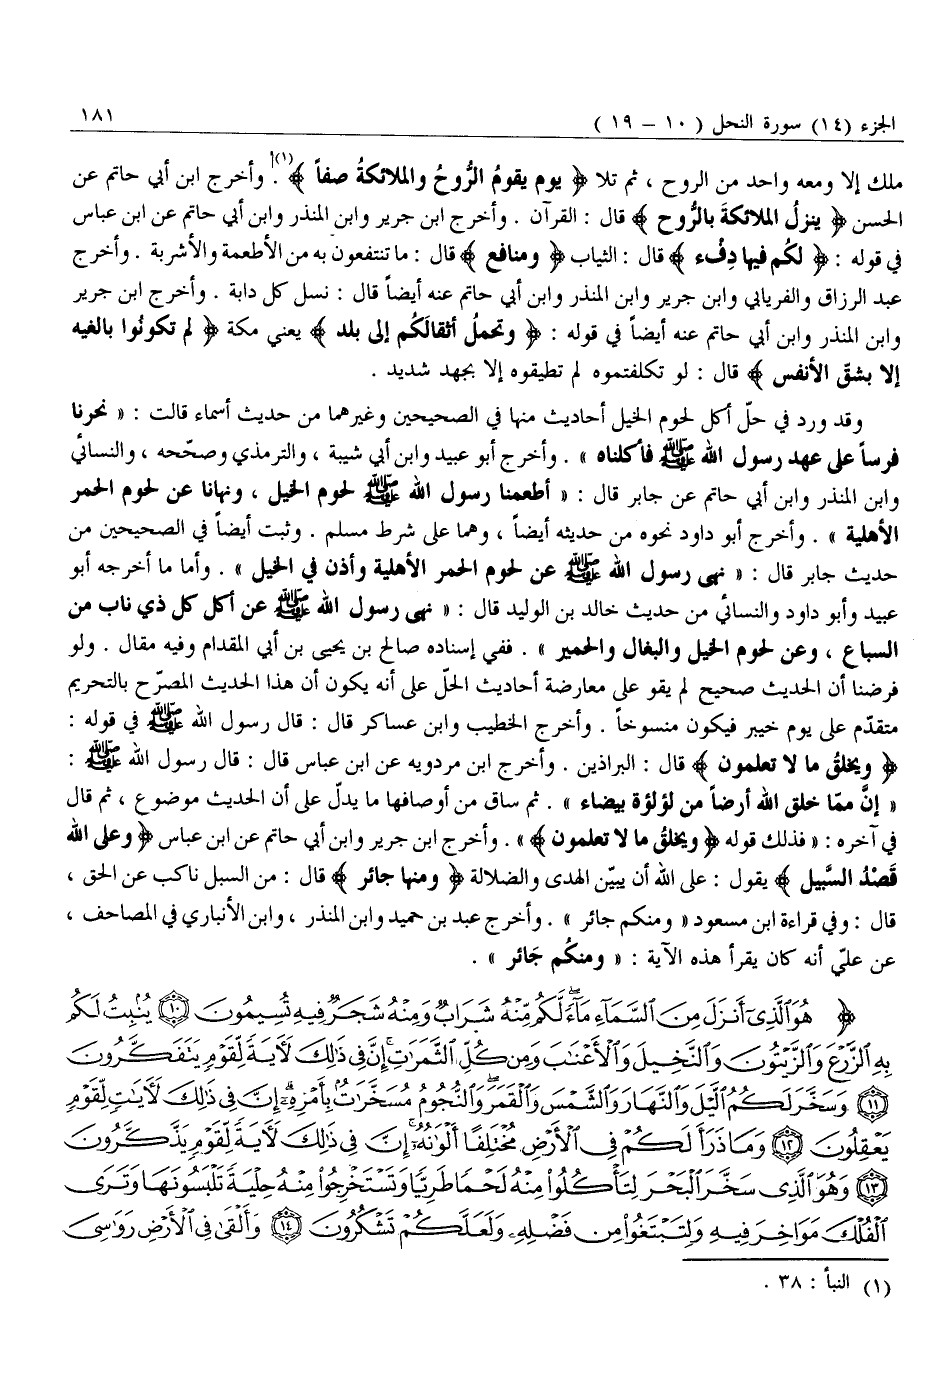 الجزء (١٤) سورة النحل ( ١٠ – ١٩ ) ١٨١
ملك إلا ومعه واحد من الروح ، ثم تلا ﴿ يوم يقومُ الرُّوحُ والملائكةُ صفاً ﴾(١) . وأخرج ابن أبي حاتم عن
الحسن ﴿ ينزلُ الملائكةَ بالرُّوح ﴾ قال : القرآن . وأخرج ابن جرير وابن المنذر وابن أبي حاتم عن ابن عباس
في قوله : ﴿ لكُم فيها دِفْء ﴾ قال : الثياب ﴿ ومنافع ﴾ قال : ما تنتفعون به من الأطعمة والأشربة . وأخرج
عبد الرزاق والفريابي وابن جرير وابن المنذر وابن أبي حاتم عنه أيضاً قال : نسل كل دابة . وأخرج ابن جرير
وابن المنذر وابن أبي حاتم عنه أيضاً في قوله : ﴿ وتحملُ أثقالَكُم إلى بلد ﴾ يعني مكة ﴿ لم تكونُوا بالغيه
إلا بشقّ الأنفس ﴾ قال : لو تكلفتموه لم تطيقوه إلا بجهد شديد .
وقد ورد في حلّ أكل لحوم الخيل أحاديث منها في الصحيحين وغيرهما من حديث أسماء قالت : « نحرنا
فرساً على عهد رسول الله ﷺ فأكلناه » . وأخرج أبو عبيد وابن أبي شيبة ، والترمذي وصحّحه ، والنسائي
وابن المنذر وابن أبي حاتم عن جابر قال : « أطعمنا رسول الله ﷺ لحوم الخيل ، ونهانا عن لحوم الحمر
الأهلية » . وأخرج أبو داود نحوه من حديثه أيضاً ، وهما على شرط مسلم . وثبت أيضاً في الصحيحين من
حديث جابر قال : « نهى رسول الله ﷺ عن لحوم الحمر الأهلية وأذن في الخيل » . وأما ما أخرجه أبو
عبيد وأبو داود والنسائي من حديث خالد بن الوليد قال : « نهى رسول الله ﷺ عن أكل كل ذي ناب من
السباع ، وعن لحوم الخيل والبغال والحمير » . ففي إسناده صالح بن يحيى بن أبي المقدام وفيه مقال . ولو
فرضنا أن الحديث صحيح لم يقو على معارضة أحاديث الحلّ على أنه يكون أن هذا الحديث المصرّح بالتحريم
متقدّم على يوم خيبر فيكون منسوخاً . وأخرج الخطيب وابن عساكر قال : قال رسول الله ﷺ في قوله :
﴿ ويخلقُ ما لا تعلمون ﴾ قال : البراذين . وأخرج ابن مردويه عن ابن عباس قال : قال رسول الله ﷺ :
« إنَّ ممّا خلق الله أرضاً من لؤلؤة بيضاء » . ثم ساق من أوصافها ما يدلّ على أن الحديث موضوع ، ثم قال
في آخره : « فذلك قوله ﴿ ويخلقُ ما لا تعلمون ﴾» . وأخرج ابن جرير وابن أبي حاتم عن ابن عباس ﴿ وعلى الله
قَصْدُ السَّبيل ﴾ يقول : على الله أن يبيّن الهدى والضلالة ﴿ ومنها جائر ﴾ قال : من السبل ناكب عن الحق ،
قال : وفي قراءة ابن مسعود « ومنكم جائر » . وأخرج عبد بن حميد وابن المنذر ، وابن الأنباري في المصاحف ،
عن عليّ أنه كان يقرأ هذه الآية : « ومنكُم جَائر » .
﴿ هُوَ ٱلَّذِىٓ أَنزَلَ مِنَ ٱلسَّمَآءِ مَآءً لَّكُم مِّنْهُ شَرَابٌ وَمِنْهُ شَجَرٌ فِيهِ تُسِيمُونَ ١٠ يُنۢبِتُ لَكُم
بِهِ ٱلزَّرْعَ وَٱلزَّيْتُونَ وَٱلنَّخِيلَ وَٱلْأَعْنَٰبَ وَمِن كُلِّ ٱلثَّمَرَٰتِ إِنَّ فِى ذَٰلِكَ لَءَايَةً لِّقَوْمٍ يَتَفَكَّرُونَ
١١ وَسَخَّرَ لَكُمُ ٱلَّيْلَ وَٱلنَّهَارَ وَٱلشَّمْسَ وَٱلْقَمَرَ وَٱلنُّجُومُ مُسَخَّرَٰتٌۢ بِأَمْرِهِۦٓ إِنَّ فِى ذَٰلِكَ لَءَايَٰتٍ لِّقَوْمٍ
يَعْقِلُونَ ١٢ وَمَا ذَرَأَ لَكُمْ فِى ٱلْأَرْضِ مُخْتَلِفًا أَلْوَٰنُهُۥٓ إِنَّ فِى ذَٰلِكَ لَءَايَةً لِّقَوْمٍ يَذَّكَّرُونَ
١٣ وَهُوَ ٱلَّذِى سَخَّرَ ٱلْبَحْرَ لِتَأْكُلُوا۟ مِنْهُ لَحْمًا طَرِيًّا وَتَسْتَخْرِجُوا۟ مِنْهُ حِلْيَةً تَلْبَسُونَهَا وَتَرَى
ٱلْفُلْكَ مَوَاخِرَ فِيهِ وَلِتَبْتَغُوا۟ مِن فَضْلِهِۦ وَلَعَلَّكُمْ تَشْكُرُونَ ١٤ وَأَلْقَىٰ فِى ٱلْأَرْضِ رَوَٰسِىَ
(١) النبأ : ٣٨ .